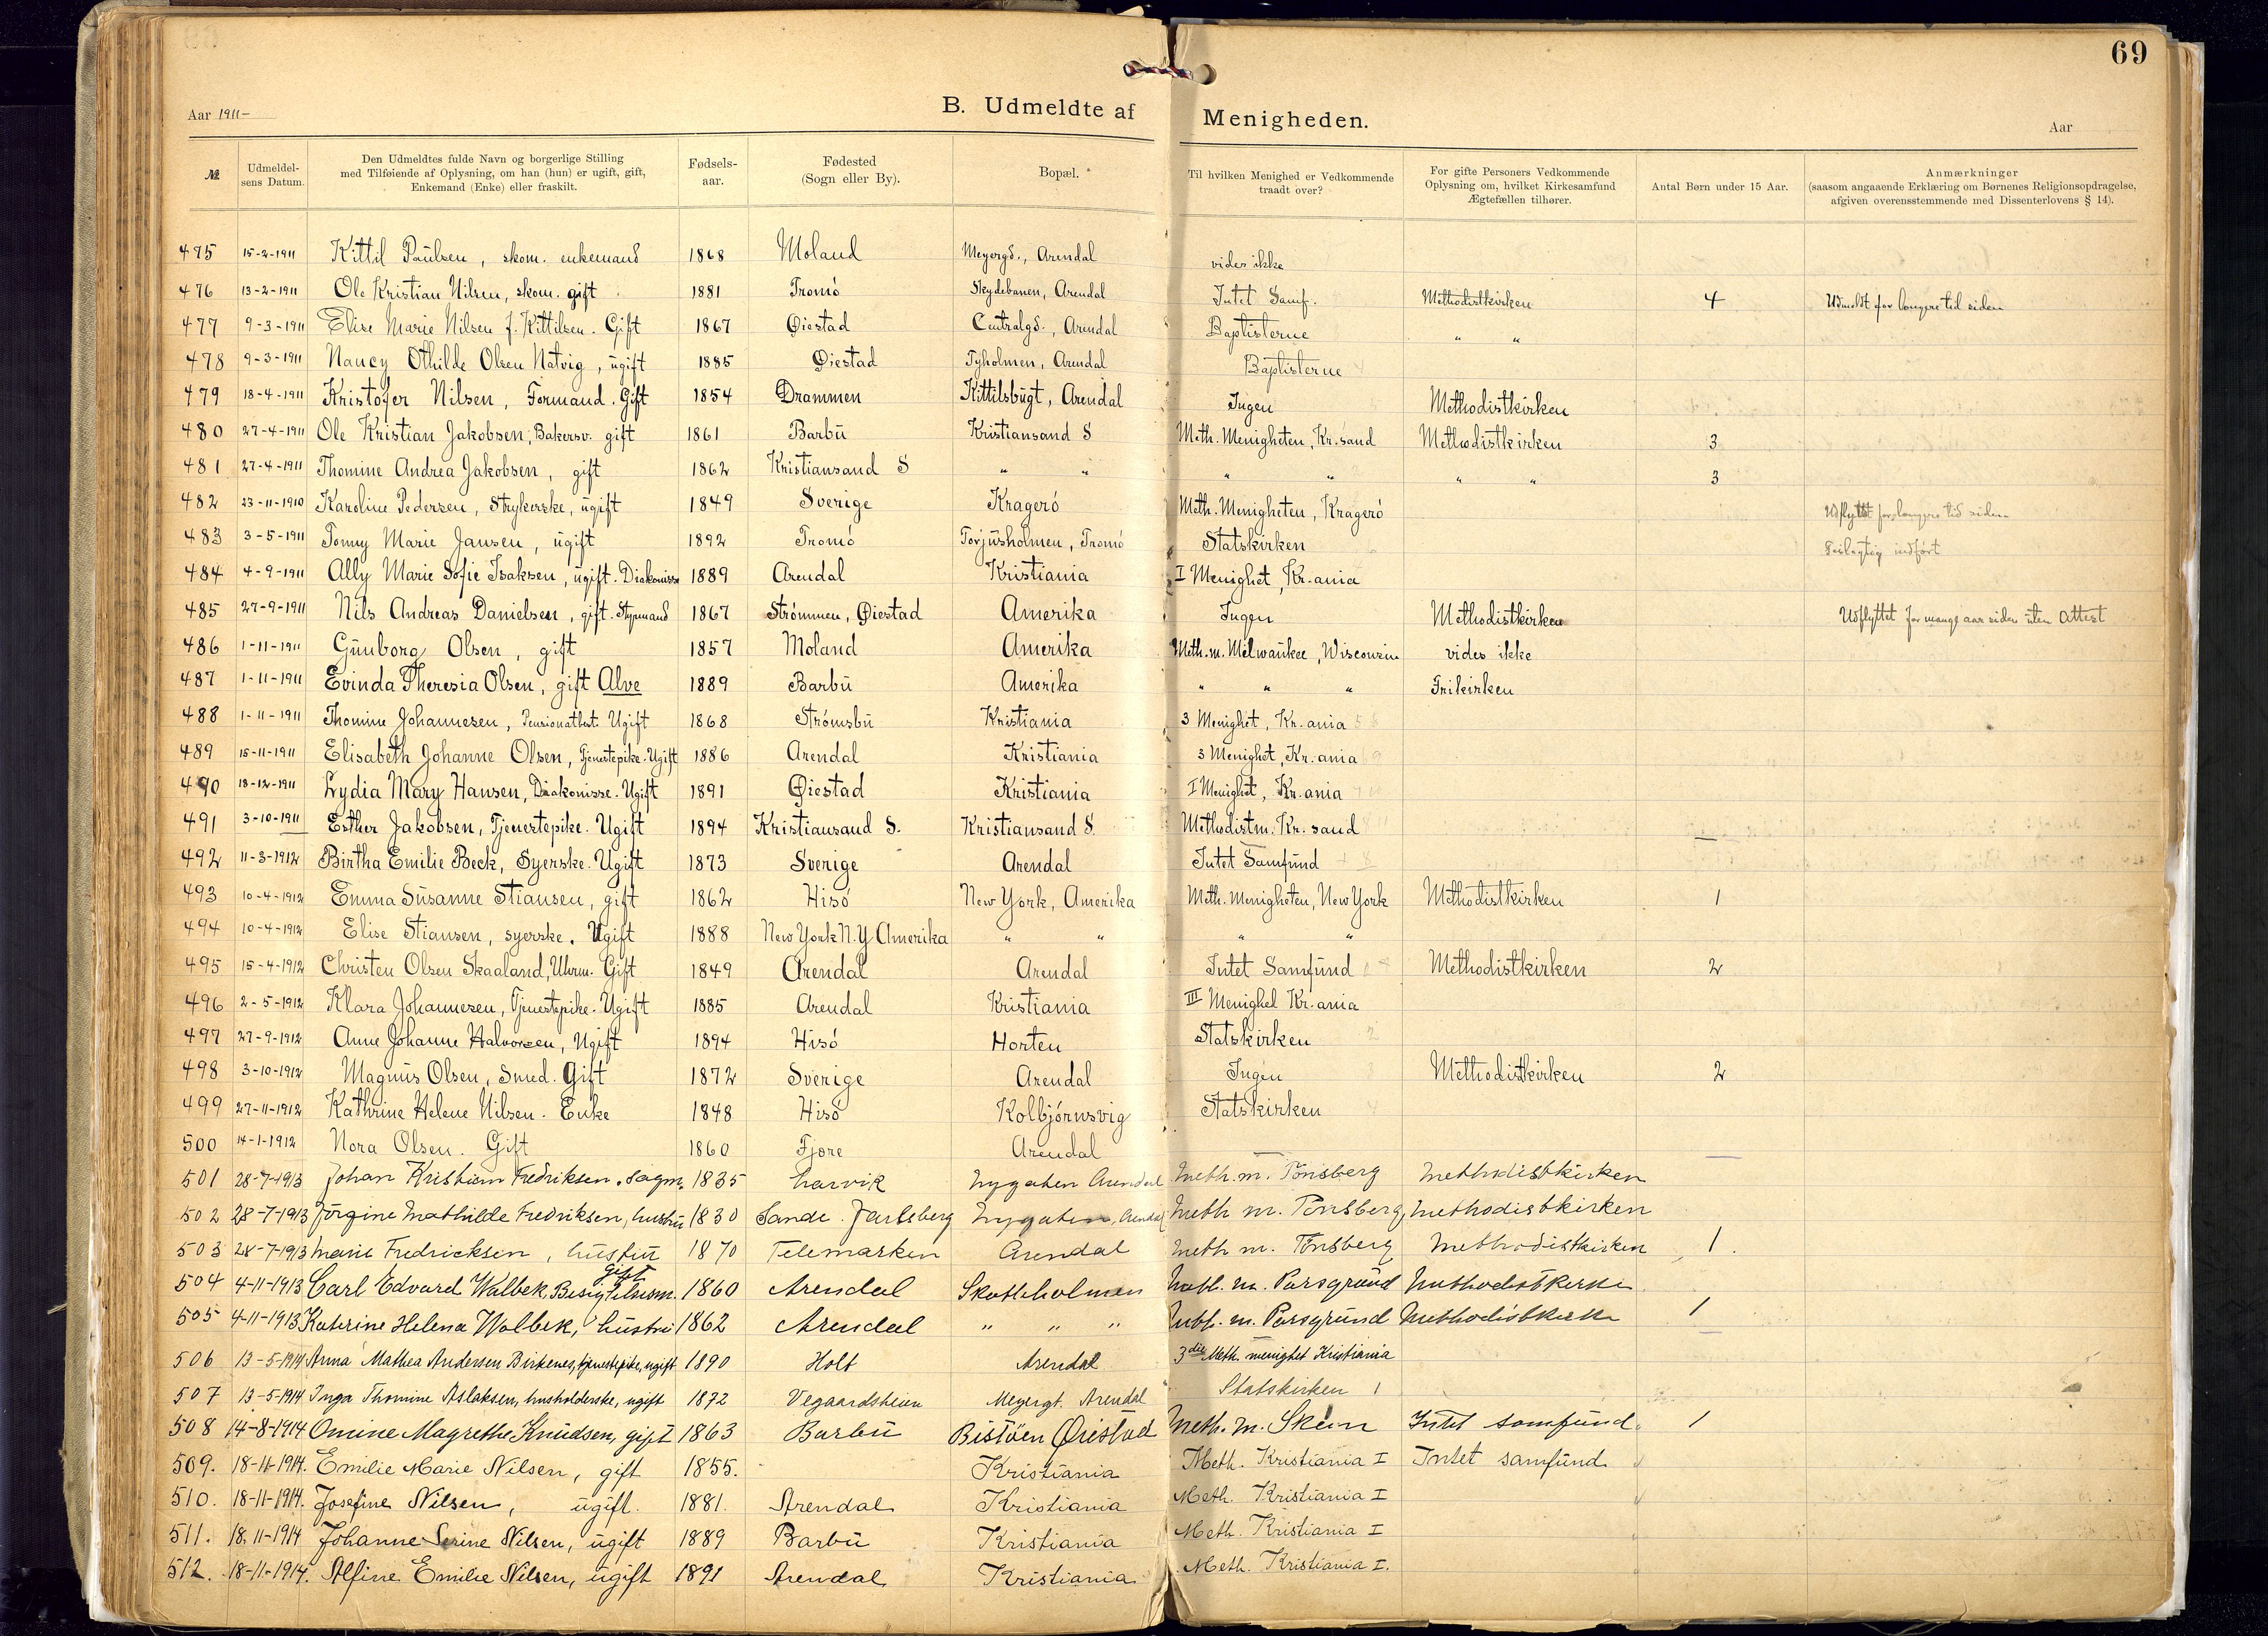 69
Aar 1911-
B. Udmeldte af Menigheden.
Aar
№ | Udmeldelsens Datum. | Den Udmeldtes fulde Navn og borgerlige Stilling med Tilføiende af Oplysning, om han (hun) er ugift, gift, Enkemand (Enke) eller fraskilt. | Fødselsaar. | Fødested (Sogn eller By). | Bopæl. | Til hvilken Menighed er Vedkommende traadt over? | For gifte Personers Vedkommende Oplysning om, hvilket Kirkesamfund Ægtefællen tilhører. | Antal Børn under 15 Aar. | Anmærkninger (saasom angaaende Erklæring om Børnenes Religionsopdragelse, afgiven overensstemmende med Dissenterlovens § 14).
475 15-2-1911 Kittil Paulsen, skom. enkemand 1868 Moland Meyergd., Arendal vides ikke
476 13-2-1911 Ole Kristian Nilsen, skom. gift 1881 Tromö Skydebanen, Arendal Intet Samf. Methodistkirken 4 Udmeldt for længere tid siden
477 9-3-1911 Elise Marie Nilsen f. Kittilsen. Gift 1867 Øiestad Centralgd., Arendal Baptisterne " "
478 9-3-1911 Nancy Othilde Olsen Natvig, ugift 1885 Øiestad Tyholmen, Arendal Baptisterne
479 18-4-1911 Kristofer Nilsen, Formand. Gift 1854 Drammen Kittilsbugt, Arendal Ingen Methodistkirken
480 27-4-1911 Ole Kristian Jakobsen, Bakersv. gift 1861 Barbu Kristiansand S Meth. Menigheten, Kr.sand Methodistkirken 3
481 27-4-1911 Thomine Andrea Jakobsen, gift 1862 Kristiansand S " " " " " " 3
482 23-11-1910 Karoline Pedersen, Strykerske, ugift 1849 Sverige Kragerö Meth. Menigheten, Kragerö Udflyttet for længere tid siden
483 3-5-1911 Tomy Marie Jansen, ugift 1892 Tromö Torjusholmen, Tromö Statskirken Feilagtig indført
484 4-9-1911 Ally Marie Sofie Isaksen, ugift. Diakonisse 1889 Arendal Kristiania I Menighet, Kr.ania
485 27-9-1911 Nils Andreas Danielsen, gift. Styrmand 1867 Strømmen, Øiestad Amerika Ingen Methodistkirken Udflyttet for mange aar siden uten attest
486 1-11-1911 Gunborg Olsen, gift 1857 Moland Amerika Meth. m. Milwaukee, Wisconsin vides ikke
487 1-11-1911 Evinda Theresia Olsen, gift Alve 1889 Barbu Amerika " " " Frikirken
488 1-11-1911 Thomine Johannesen, Ugift 1868 Strømsbu Kristiania 3 Menighet, Kr.ania
489 15-11-1911 Elisabeth Johanne Olsen, Tjenestepike. Ugift 1886 Arendal Kristiania 3 Menighet, Kr.ania
490 18-12-1911 Lydia Mary Hansen, Diakonisse. Ugift 1891 Øiestad Kristiania I Menighet, Kr.ania
491 3-10-1911 Esther Jakobsen, Tjenestepike. Ugift 1894 Kristiansand S. Kristiansand S. Methodistm. Kr.sand —
492 11-3-1912 Birtha Emilie Beck, Syerske. Ugift 1873 Sverige Arendal Intet Samfund
493 10-4-1912 Emma Susanne Stiansen, gift 1862 Hisö New York, Amerika Meth. Menigheten, New York Methodistkirken 1
494 10-4-1912 Elise Stiansen, syerske. Ugift 1888 New York N.Y Amerika " " " "
495 15-4-1912 Christen Olsen Skaaland, Uhrm. Gift 1849 Arendal Arendal Intet Samfund Methodistkirken 2
496 2-5-1912 Klara Johannesen, Tjenestepike. Ugift 1885 Arendal Kristiania III Menighet Kr.ania
497 27-9-1912 Anne Johanne Halvorsen, Ugift 1894 Hisö Horten Statskirken
498 3-10-1912 Magnus Olsen, Smed. Gift 1872 Sverige Arendal Ingen Methodistkirken 2
499 27-11-1912 Kathrine Helene Nilsen. Enke 1848 Hisö Kolbjörnsvig Statskirken
500 14-1-1912 Nora Olsen. Gift 1860 Fjære Arendal —
501 28-7-1913 Johan Kristian Fredriksen. Sagm. 1835 Larvik Nygaten Arendal Meth. m. Tönsberg Methodistkirken
502 28-7-1913 Jörgine Mathilde Fredriksen, hustru 1830 Sande. Jarlsberg Nygaten, Arendal Meth m. Tönsberg Methodistkirken
503 28-7-1913 Marie Fredricksen, hustru 1870 Telemarken Arendal Meth m. Tönsberg Methodistkirken 1.
504 4-11-1913 Carl Edvard Walbek, Besigtelsesm. gift 1860 Arendal Skotteholmen Meth. m. Porsgrund Methodistkirke
505 4-11-1913 Katrine Helena Walbek, hustru 1862 Arendal " " " Meth. m. Porsgrund Methodistkirke 1
506 13-5-1914 Anna Mathea Andersen Birkenes, tjenestepike, ugift 1890 Holt Arendal 3die Meth. menighet Kristiania
507 13-5-1914 Inga Thomine Aslaksen, husholderske, ugift 1872 Vegaardsheien Meyergt. Arendal Statskirken
508 14-8-1914 Omine Magrethe Knudsen, gift 1863 Barbu Bistöen Øiestad Meth. m. Skien Intet samfund. 1
509. 18-11-1914. Emilie Marie Nilsen, gift 1855. Kristiania Meth. Kristiania I Intet samfund
510. 18-11-1914. Josefine Nilsen, ugift. 1881. Arendal Kristiania Meth. Kristiania I
511. 18.11-1914 Johanne Serine Nilsen, ugift 1889 Barbu Kristiania Meth. Kristiania I
512. 18-11-1914. Alfine Emilie Nilsen, ugift 1891 Arendal Kristiania Meth. Kristiania I.